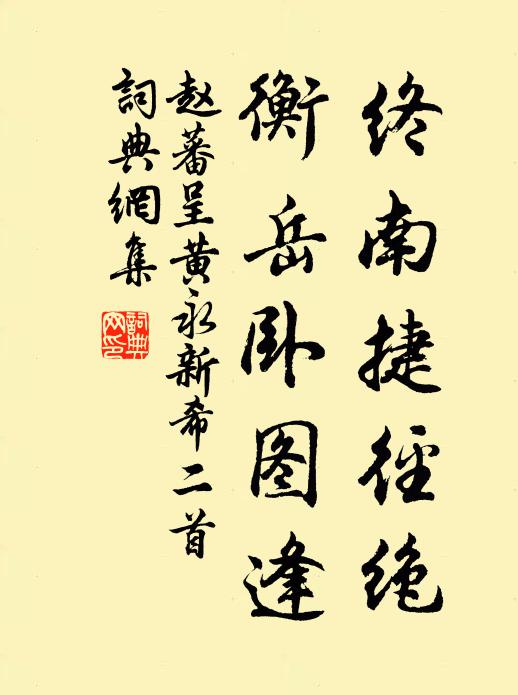 终南捷径绝
衡岳卧图逢
赵蕃呈黄永新希二首
词典網集
詞典网印